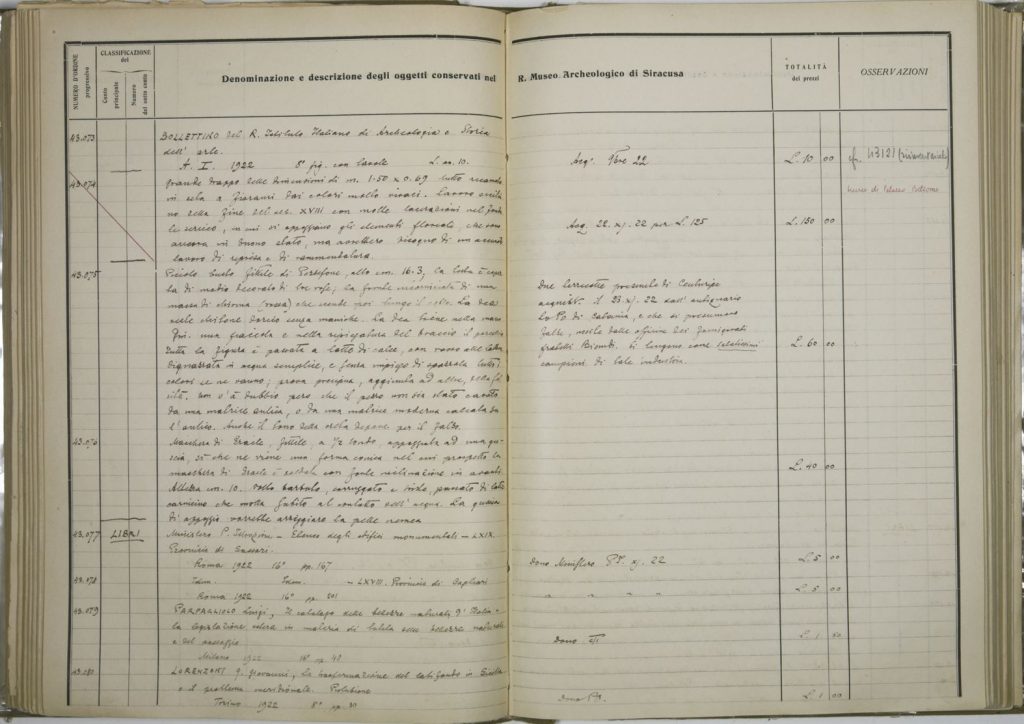 NUMERO D'ORDINE progressivo
CLASSIFICAZIONE del
Conto principale
Numero del sotto conto
Denominazione e descrizione degli oggetti conservati nel R. Museo Archeologico di Siracusa
TOTALITÀ dei prezzi
OSSERVAZIONI
43.073
BOLLETTINO del R. Istituto Italiano di Archeologia e Storia
dell'arte.
A. I. 1922 8° fig. con tavole L. 10.
Acq. 9bre 22
L. 10 00
cf. 43121
43.074
Grande drappo delle dimensioni di m. 1.50 x 0.69 tutto ricamato
in seta a fiorami dai colori molto vivaci. Lavoro sicilia
no della fine del sec. XVIII con molte lacerazioni nel fondo
di serico, in cui si appoggiano gli elementi floreali, che sono
ancora in buono stato, ma avrebbero bisogno di un accurato
lavoro di ripresa e di rammendatura.
Acq. 22. xj. 22 per L. 125
L. 150 00
Museo di Palazzo Bellomo
43.075
Piccolo busto fittile di Persefone, alto cm. 16.3; la testa è coper
ta di modio decorato di tre rose; la fronte incorniciata di una
massa di chioma (rossa) che scende poi lungo il collo. La dea
veste chitone dorico senza maniche. La dea tiene nella mano
una fiaccola e nella ripiegatura del braccio il porcellino
Tutta la figura è passata a latte di calce, con rosso alle labbra
in acqua semplice, e senza impiego di spazzola tutti i
colori se ne vanno; prova precipua, aggiunta ad altre, della fal
sità. Non v'à dubbio però che il pezzo non sia stato cavato
da una matrice antica, o da una matrice moderna calcata da
l'antico. Anche il tono della creta depone per il falso.
Due terrecotte provenienti di Centuripe
acquist. il 23 xj. 22 dall'antiquario
Lo Po. di Catania, e che si presumono
false, uscite dalle officine dei famigerati
fratelli Biondi. Si tengono come
campioni di tale industria.
L. 60 00
43.076
Maschera di Eracle, fittile, a 1/2 tondo, appoggiata ad una gu
scia, sì che ne viene una forma conica nel cui prospetto la
maschera di Eracle è saldata con forte inclinazione in avanti.
Altezza cm. 10. Volto barbuto, corrugato e tristo, passato di latte
carnicino che molla subito al contatto dell'acqua. La guancia
di appoggio vorrebbe arieggiare la pelle nemea
L. 40 00
43.077
LIBRI
Ministero P. Istruzione - Elenco degli edifici monumentali - LXIX.
Provincia di Sassari.
Roma 1922 16° pp. 167
Dono Ministero P.I. xj. 22
L. 5 00
43.078
Idem. Idem. - LXVIII. Provincia di Cagliari
Roma 1922 16° pp. 201
" " " "
L. 5 00
43.079
PARPAGLIOLO Luigi, Il catalogo delle bellezze naturali d'Italia -
la legislazione estera in materia di tutela delle bellezze naturali
e del paesaggio
Milano 1922 16° pp. 40
Dono
L. 1 50
43.080
LORENZONI G. Giovanni, La trasformazione del latifondo in Sicilia
e il problema meridionale. Prolusione
Torino 1922 8° pp. 30
Dono
L. 1 00